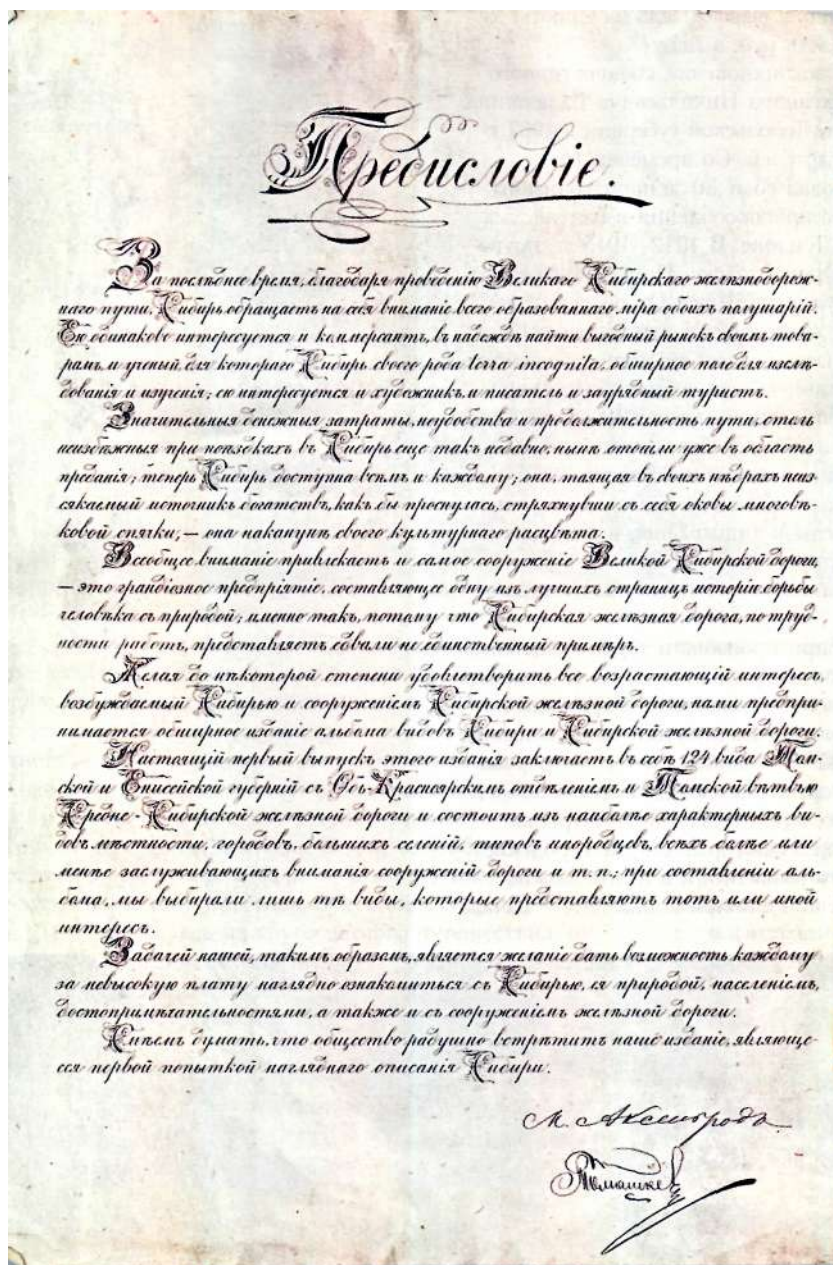 Предисловіе.
За послѣднее время, благодаря проведенію Великаго Сибирскаго желѣзнодорож-
наго пути, Сибирь обращаетъ на себя вниманіе всего образованнаго міра обоихъ полушарій.
Ею одинаково интересуется и коммерсантъ, въ надеждѣ найти выгодный рынокъ своимъ това-
рамъ, и ученый, для котораго Сибирь своего рода terra incognita, обширное поле для изслѣ-
дованія и изученія; ею интересуется и художникъ, и писатель и заурядный туристъ.
Значительныя денежныя затраты, неудобства и продолжительность пути, столь
неизбѣжныя при поѣздкахъ въ Сибирь еще такъ недавно, нынѣ отошли уже въ область
преданія; теперь Сибирь доступна всѣмъ и каждому; она, таящая въ своихъ нѣдрахъ неис-
сякаемый источникъ богатствъ, какъ бы проснулась, стряхнувши съ себя оковы многовѣ-
ковой спячки, — она наканунѣ своего культурнаго расцвѣта.
Всеобщее вниманіе привлекаетъ и самое сооруженіе Великой Сибирской дороги,
— это грандіозное предпріятіе, составляющее одну изъ лучшихъ страницъ исторіи борьбы
человѣка съ природой; именно такъ, потому что Сибирская желѣзная дорога, по труд-
ности работъ, представляетъ едвали не единственный примѣръ.
Желая до нѣкоторой степени удовлетворить все возрастающій интересъ,
возбуждаемый Сибирью и сооруженіемъ Сибирской желѣзной дороги, нами предпри-
нимается обширное изданіе альбома видовъ Сибири и Сибирской желѣзной дороги.
Настоящій первый выпускъ этого изданія заключаетъ въ себѣ 124 вида Том-
ской и Енисейской губерній съ Объ-Красноярскимъ отдѣленіемъ и Томской вѣтвью
Средне-Сибирской желѣзной дороги и состоитъ изъ наиболѣе характерныхъ ви-
довъ мѣстности, городовъ, большихъ селеній, типовъ инородцевъ, всѣхъ болѣе или
менѣе заслуживающихъ вниманія сооруженій дороги и т. п.; при составленіи аль-
бома, мы выбирали лишь тѣ виды, которые представляютъ тотъ или иной
интересъ.
Задачей нашей, такимъ образомъ, является желаніе дать возможность каждому
за невысокую плату наглядно ознакомиться съ Сибирью, ея природой, населеніемъ,
достопримѣчательностями, а также и съ сооруженіемъ желѣзной дороги.
Смѣемъ думать, что общество радушно встрѣтитъ наше изданіе, являюще-
еся первой попыткой нагляднаго описанія Сибири.
М. Аксельродъ
Томашкев